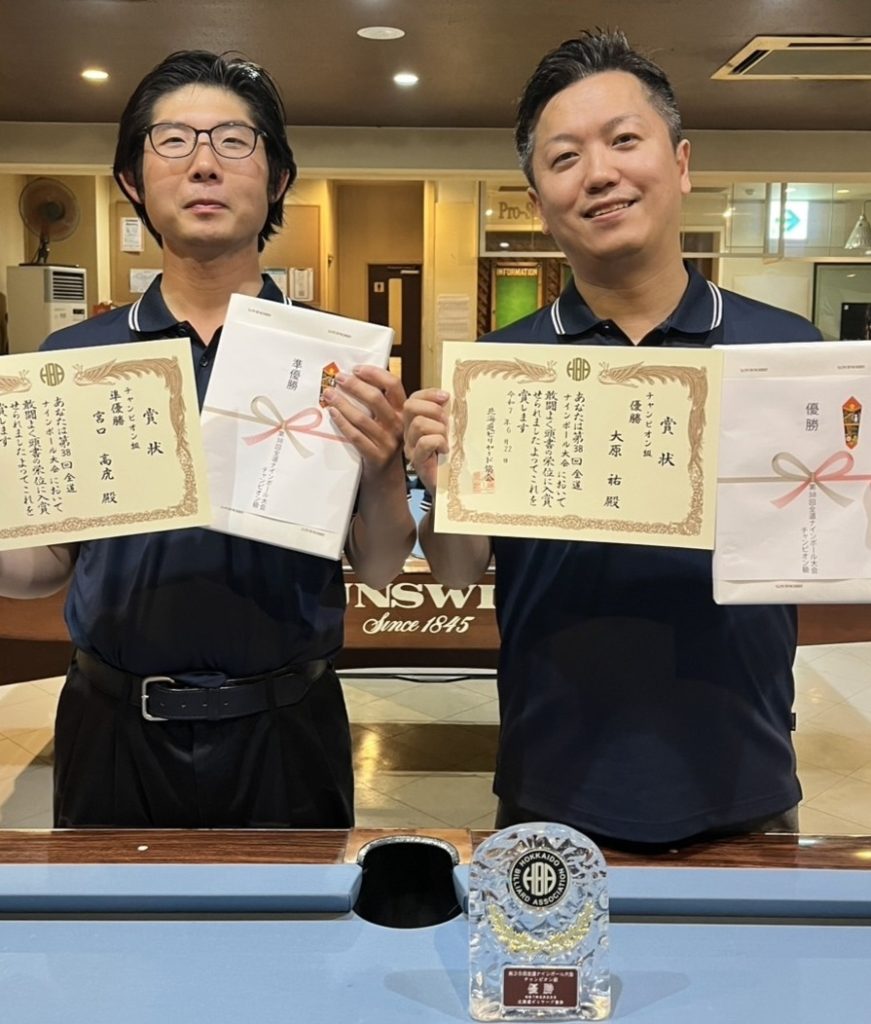 HBA
賞状
チャンピオン級
準優勝
宮口 高虎 殿
あなたは第38回全道
ナインボール大会において
敢闘よく頭書の栄位に入賞
せられましたよってこれを
賞します
準優勝
第38回全道ナインボール大会
チャンピオン級
HBA
賞状
チャンピオン級
優勝
大原 祐 殿
あなたは第38回全道
ナインボール大会において
敢闘よく頭書の栄位に入賞
せられましたよってこれを
賞します
令和7年6月22日
北海道ビリヤード協会
優勝
第38回全道ナインボール大会
チャンピオン級
Pro-S
INFORMATION
UNSWI
Since 1845
HOKKAIDO
HBA
BILLIARD ASSOCIATION
第38回全道ナインボール大会
チャンピオン級
優勝
北海道ビリヤード協会